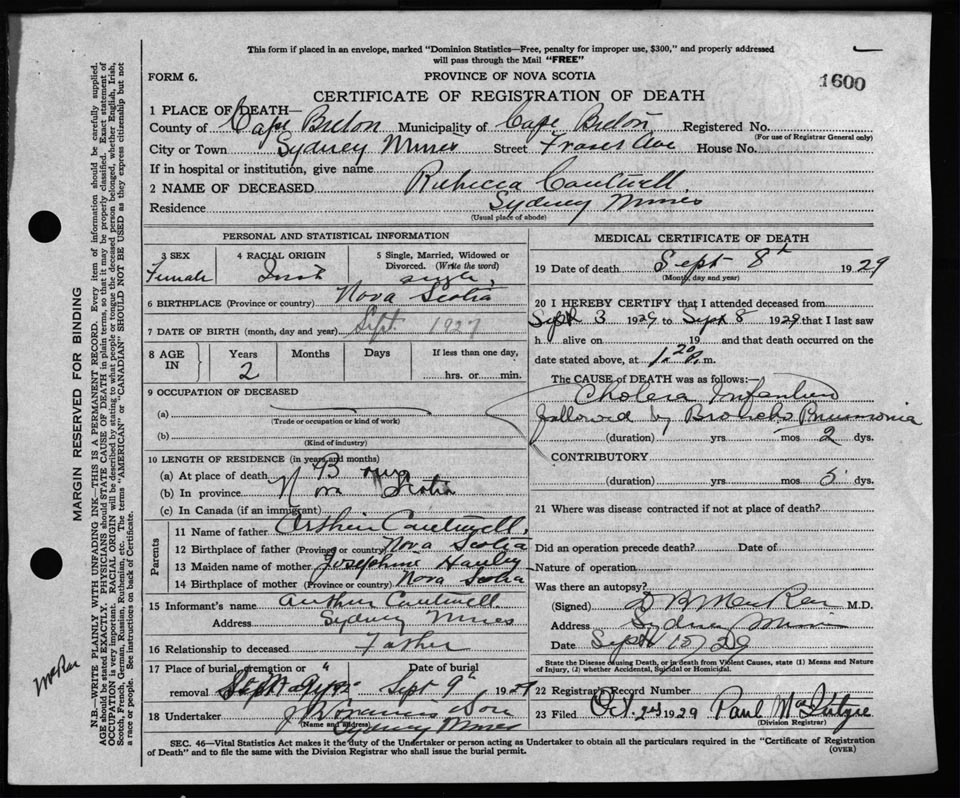 This form if placed in an envelope, marked "Dominion Statistics—Free, penalty for improper use, $300," and properly addressed
will pass through the Mail "FREE"
FORM 6.
PROVINCE OF NOVA SCOTIA
1600
CERTIFICATE OF REGISTRATION OF DEATH
1 PLACE OF DEATH—
County of Cape Breton Municipality of Cape Breton Registered No.
(For use of Registrar General only)
City or Town Sydney Mines Street Fraser Ave House No.
If in hospital or institution, give name
2 NAME OF DECEASED Rebecca Cantwell.
Residence Sydney Mines
(Usual place of abode)
PERSONAL AND STATISTICAL INFORMATION
3 SEX 4 RACIAL ORIGIN 5 Single, Married, Widowed or
Divorced. (Write the word)
Female Irish single
6 BIRTHPLACE (Province or country) Nova Scotia
7 DATE OF BIRTH (month, day and year) Sept. 1927
8 AGE IN Years Months Days If less than one day,
2 hrs. or min.
9 OCCUPATION OF DECEASED
(a)
(Trade or occupation or kind of work)
(b)
(Kind of industry)
10 LENGTH OF RESIDENCE (in years and months)
(a) At place of death
(b) In province Nova Scotia
(c) In Canada (if an immigrant)
Parents
11 Name of father Arthur Cantwell.
12 Birthplace of father (Province or country) Nova Scotia
13 Maiden name of mother Josephine Hawley
14 Birthplace of mother (Province or country) Nova Scotia
15 Informant's name Arthur Cantwell
Address Sydney Mines
16 Relationship to deceased Father
17 Place of burial, cremation or Date of burial
removal St. Mary's Sept 9th 1929
18 Undertaker J & Son
(Name and address)
Sydney Mines
MEDICAL CERTIFICATE OF DEATH
19 Date of death Sept 8th 1929
(Month, day and year)
20 I HEREBY CERTIFY that I attended deceased from
Sept 3 1929 to Sept 8 1929 that I last saw
h alive on 19 and that death occurred on the
date stated above, at 1.20 P.m.
The CAUSE of DEATH was as follows:—
Cholera Infantum
followed by Broncho Pneumonia
(duration) yrs. mos 2 dys.
CONTRIBUTORY
(duration) yrs. mos. 5 dys.
21 Where was disease contracted if not at place of death?
Did an operation precede death? Date of
Nature of operation
Was there an autopsy?
(Signed) M.D.
Address Sydney Mines
Date Sept 15/29
State the Disease causing Death, or in death from Violent Causes, state (1) Means and Nature
of Injury, (2) whether Accidental, Suicidal or Homicidal.
22 Registrar's Record Number
23 Filed Oct. 2nd 1929 Paul McIntyre
(Division Registrar)
SEC. 46—Vital Statistics Act makes it the duty of the Undertaker or person acting as Undertaker to obtain all the particulars required in the "Certificate of Registration
of Death" and to file the same with the Division Registrar who shall issue the burial permit.
(OVER)
MARGIN RESERVED FOR BINDING
N.B.—WRITE PLAINLY WITH UNFADING INK—THIS IS A PERMANENT RECORD. Every item of information should be carefully supplied.
AGE should be stated EXACTLY. PHYSICIANS should STATE CAUSE OF DEATH in plain terms, so that it may be properly classified. Exact statement of
OCCUPATION is very important. RACIAL ORIGIN will be described by stating to what people or tongue the deceased person belonged, whether English, Irish,
Scotch, French, German, Russian, Ruthenian, etc. The terms "AMERICAN" or "CANADIAN" SHOULD NOT BE USED as they express citizenship but not
a race or people. See instructions on back of Certificate.
McRae